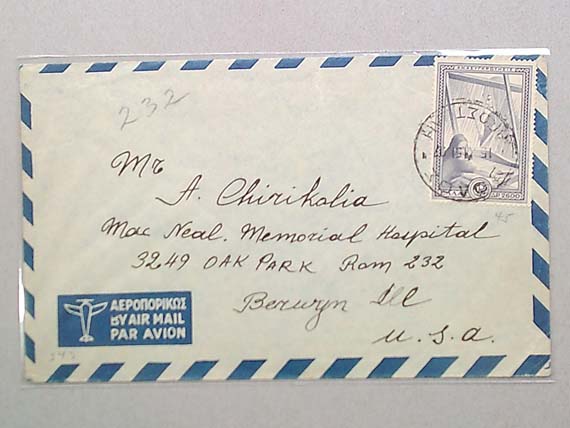 232
Mr
A. Chirikalia
Mac Neal. Memorial Hospital
3249 OAK PARK Rom 232
Berwyn Ill
U.S.A.
ΑΕΡΟΠΟΡΙΚΩΣ
BY AIR MAIL
PAR AVION
45